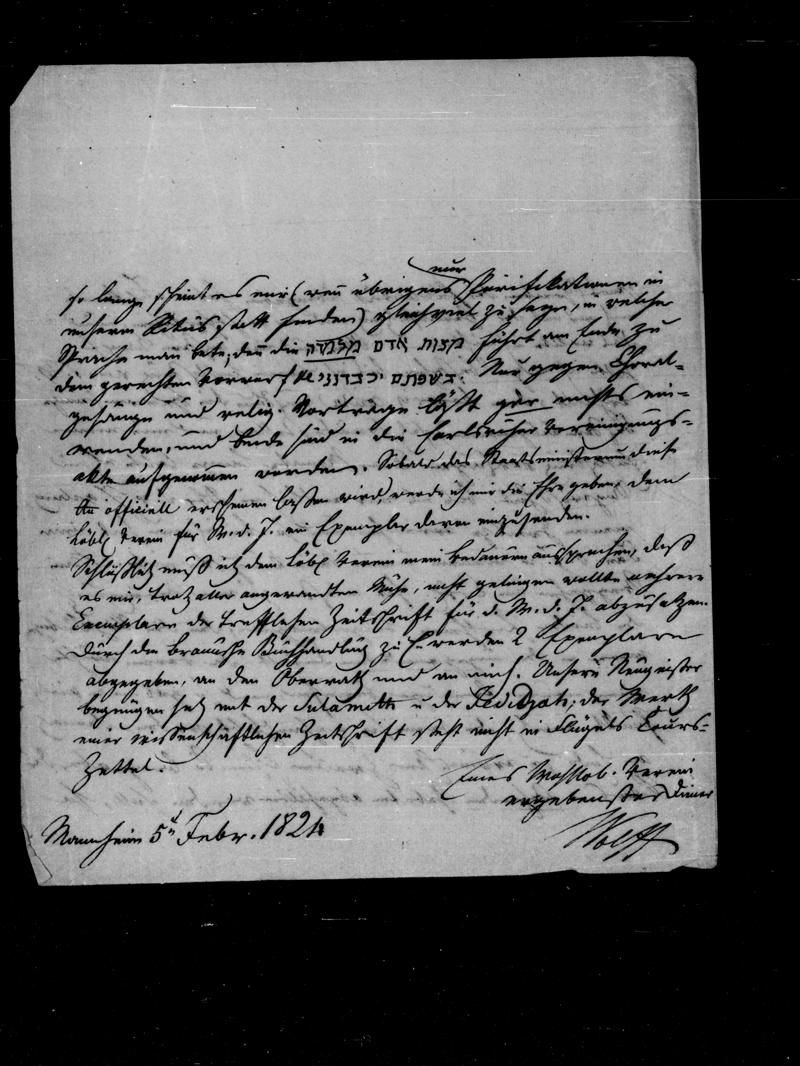 so lange scheint es mir (wenn übrigens nur Purifikationen in
unserm Ritus statt finden) gleichviel zu seyn, in welcher
Sprache man bete; denn die מצות אנשים מלמדה führt am Ende zu
dem gerechten Vorwurf בשפתיו כבדוני. Nun gegen Choral-
gesänge und relig. Vorträge läßt gar nichts ein-
wenden, und beide sind in die Carlsruher Vereinigungs-
akte aufgenommen worden. Sobald das Staatsministerium diese
officiell erscheinen lassen wird, werde ich mir die Ehre geben, dem
Löbl. Verein für W. d. J. ein Exemplar davon einzusenden.
Schlüßlich muß ich dem Löbl. Verein mein Bedauern aussprechen, daß
es mir, trotz aller angewandten Mühe, nicht gelingen wollte mehrere
Exemplare der trefflichen Zeitschrift für d. W. d. J. abzusetzen.
Durch die Braunsche Buchhandlung zu C. werden 2 Exemplare
abgegeben, an den Oberrath und an mich. Unsere
begnügen sich mit der Sulamith u der Jedidjah; der Werth
einer wissenschaftlichen Zeitschrift steht nicht in Cours-
Zettel.
Eines Wohllob. Verein
ergebenster Diener
Mannheim 5t Febr. 1824
Wolff